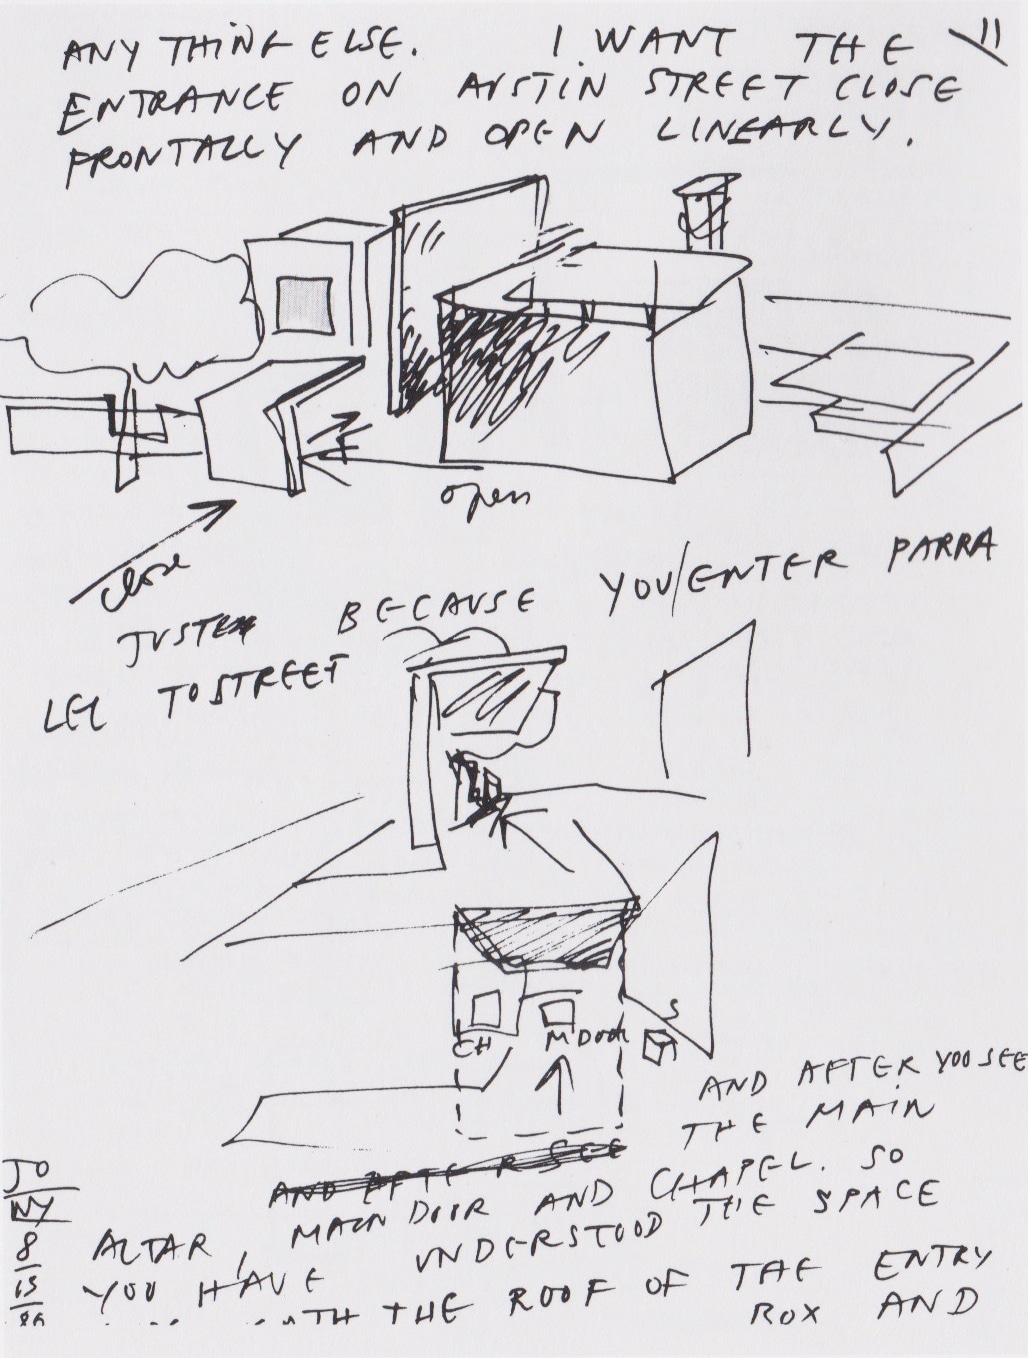 ANYTHING ELSE. I WANT THE 11
ENTRANCE ON AUSTIN STREET CLOSE
FRONTALLY AND OPEN LINEARLY.
open
close
JUSTE BECAUSE YOU/ENTER PARRA
LEL TO STREET
S
CH M DOOR
AND AFTER YOO SEE
AND AFTE R SEE THE MAIN
JO
NY
8
15
86
ALTAR, MAIN DOOR AND CHAPEL. SO
YOU HAVE UNDERSTOOD THE SPACE
WITH THE ROOF OF THE ENTRY
BOX AND